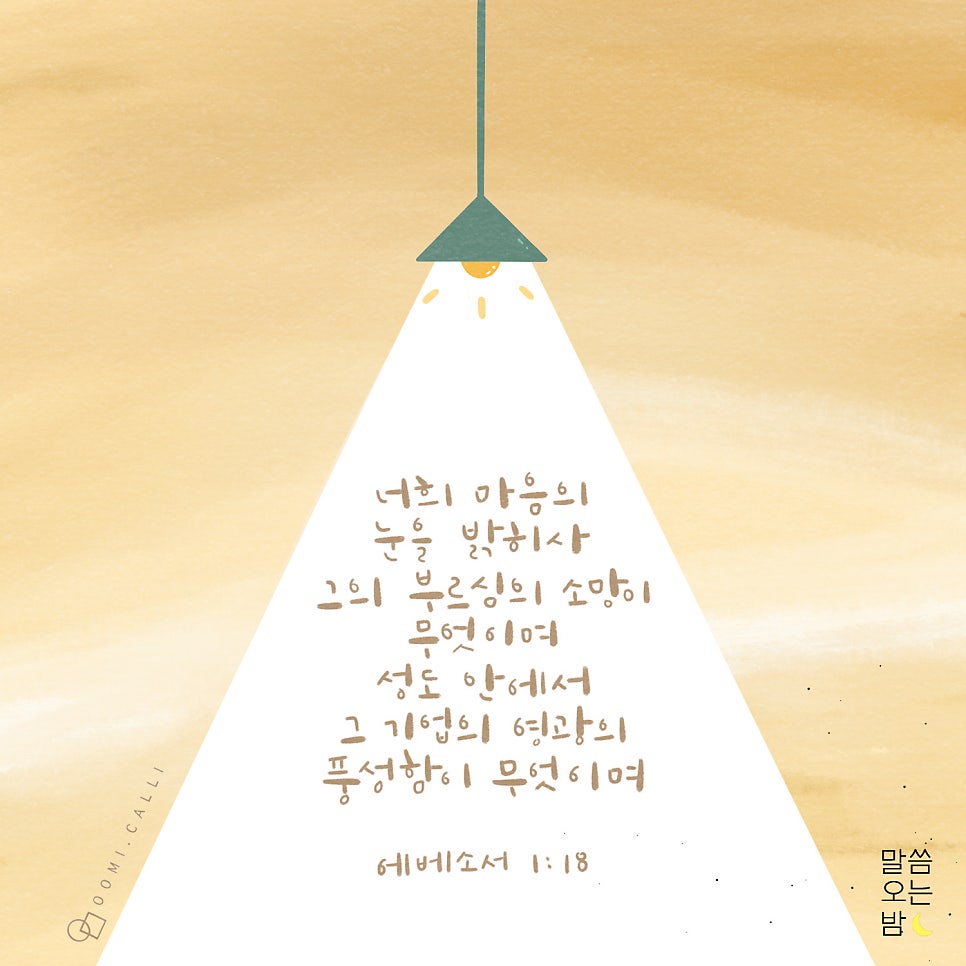 너희 마음의
눈을 밝히사
그의 부르심의 소망이
무엇이며
성도 안에서
그 기업의 영광의
풍성함이 무엇이며
에베소서 1:18
OOMI.CALLI
말씀
오는
밤